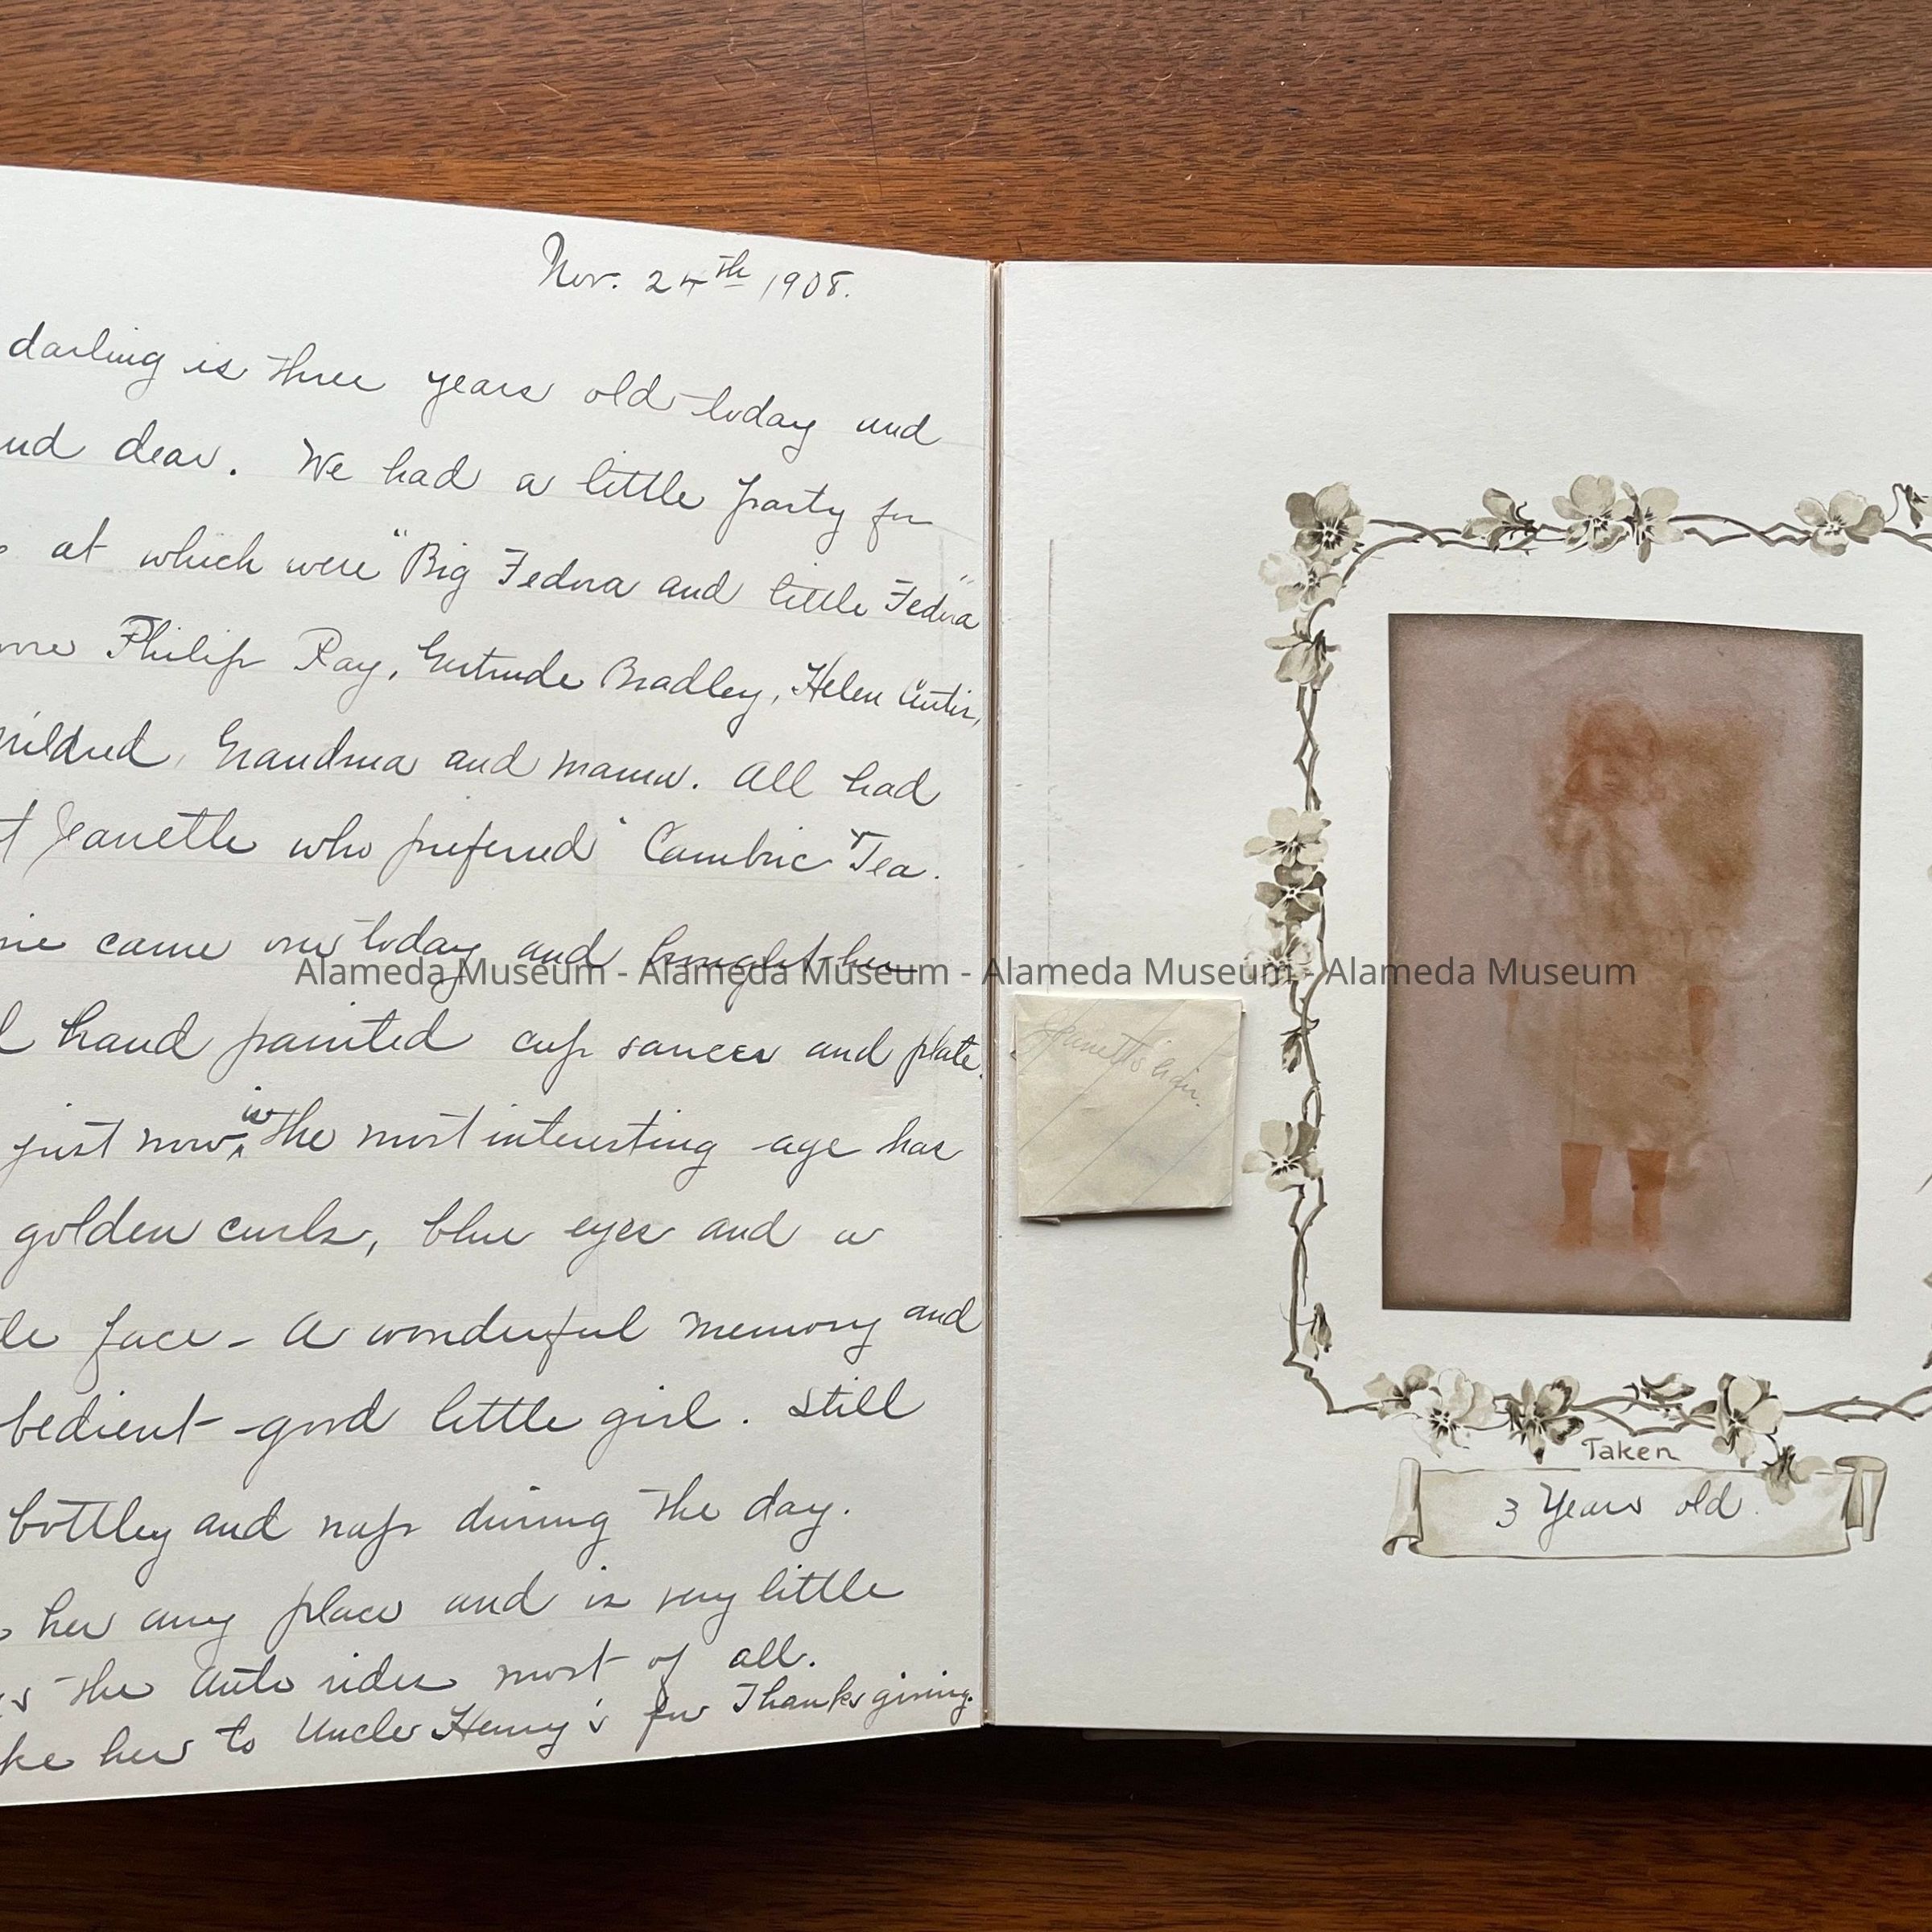 Nov. 24th 1908.
darling is three years old today and
and dear. We had a little party for
at which were "Big Fedora and little Fedora"
Philip Ray, Gertrude Bradley, Helen
Mildred, Grandma and mama. All had
Jeanette who preferred "Cambric Tea.
came over today and bought her
hand painted cup saucer and plate.
just now is the most interesting age has
golden curls, blue eyes and a
face - A wonderful memory and
obedient - good little girl. Still
bottley and naps during the day.
her any place and is very little
the Auto rides most of all.
her to Uncle Henry's for Thanksgiving.
Jeanette's hair.
Taken
3 Years old.
Alameda Museum - Alameda Museum - Alameda Museum - Alameda Museum